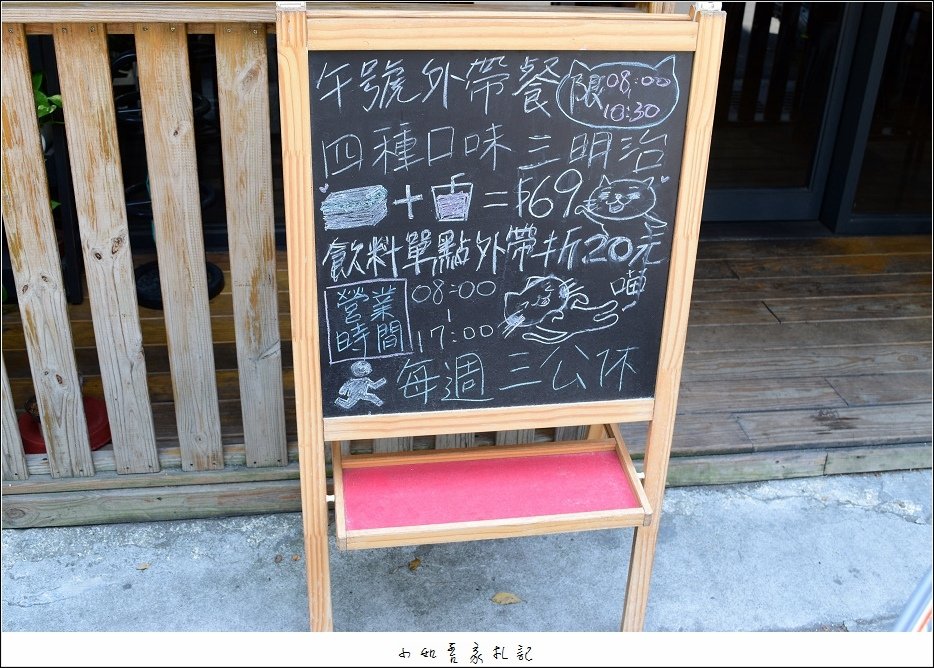 午號外帶餐 限08:00
10:30
四種口味三明治
+ = $69
飲料單點外帶折20元
喵
營業時間 08:00
|
17:00
每週三公休
小如吾家札記